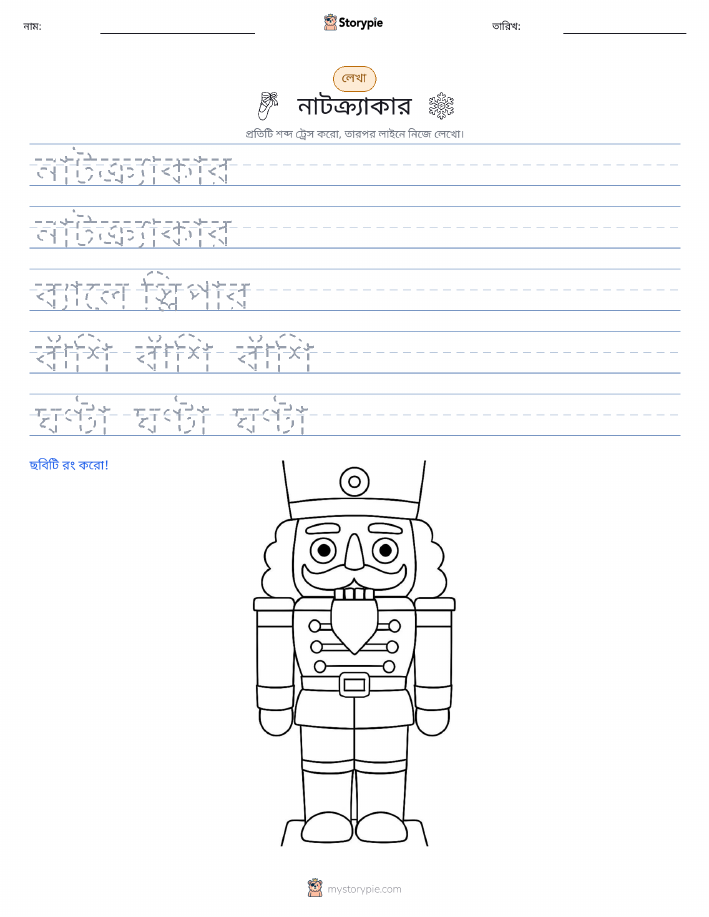 নাম: Storypie তারিখ:
লেখা
নাটক্র্যাকার
প্রতিটি শব্দ ট্রেস করো, তারপর লাইনে নিজে লেখো।
নাটক্র্যাকার
নাটক্র্যাকার
ব্যালে স্লিপার
বাঁশি বাঁশি বাঁশি
ঘণ্টা ঘণ্টা ঘণ্টা
ছবিটি রং করো!
mystorypie.com